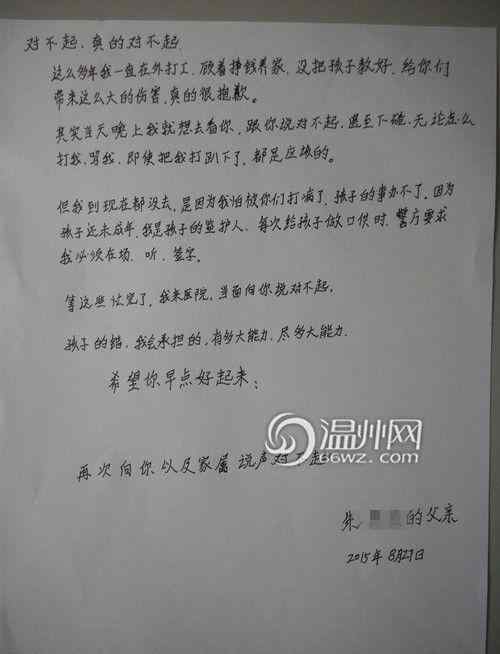 对不起，真的对不起
这么多年我一直在外打工，顾着挣钱养家，没把孩子教好，给你们
带来这么大的伤害，真的很抱歉。
其实当天晚上我就想去看你，跟你说对不起，甚至下磕，无论怎么
打我，骂我，即使把我打趴下了，都是应该的。
但我到现在都没去，是因为我怕被你们打病了，孩子的事办不了。因为
孩子还未成年，我是孩子的监护人，每次给孩子做口供时，警方要求
我必须在场、听、签字。
等这些忙完了，我来医院，当面向你说对不起。
孩子的错，我会承担的，有多大能力，尽多大能力。
希望你早点好起来；
再次向你以及家属说声对不起
朱 的父亲
2015年8月27日
温州网
66wz.com